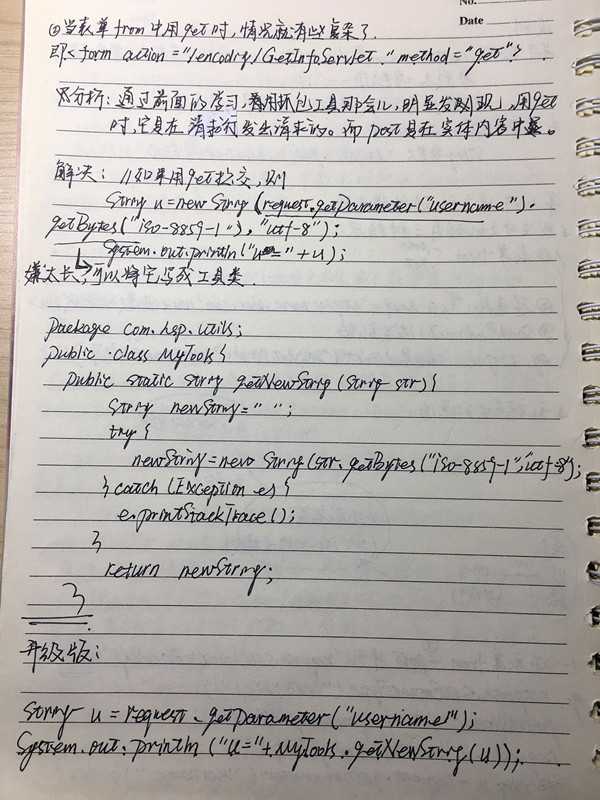 No.
Date
②当表单from中用get时,情况就有些复杂了.
即<form action="/encodry/GetInfoServlet." method="get">
分析:通过前面的学习,着用抓包工具那会儿,明显发现,用get
时,它是在请求行发出请求的。而post是在实体内容中。
解决: //如果用get提交,则
String u=new String(request.getParameter("username").
getBytes("iso-8859-1"),"utf-8");
System.out.println("u="+u);
嫌太长,可以将它写成工具类.
package com.hsp.utils;
public class MyTools{
public static String getNewString(String str){
String newString=" ";
try{
newString=new String(str.getBytes("iso-8859-1","utf-8");
}catch(Exception e){
e.printStackTrace();
}
return newString;
}
升级版:
String u=request.getParameter("username");
System.out.println("u="+MyTools.getNewString(u));